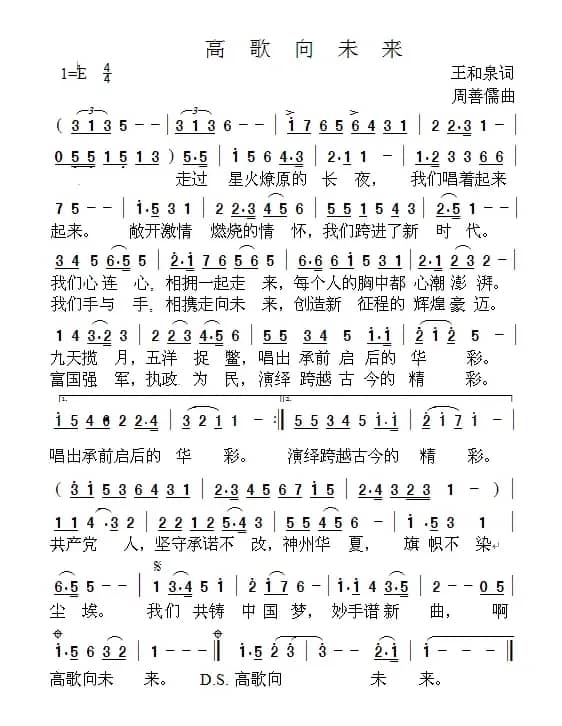 高 歌 向 未 来
1=E 4/4
王和泉词
周善儒曲
( 3 1 3 5 - - | 3 1 3 6 - - | 1 7 6 5 6 4 3 1 | 2 2·3 1 - |
0 5 5 1 5 1 3 ) 5·5 | 1 5 6 4·3 | 2·1 1 - | 1·2 3 3 6 6 |
走过 星火燎原的 长 夜， 我们唱着起来
7 5 - - | 1·5 3 1 | 2 2·3 4 5 6 | 5 5 1 5 4 3 | 2·5 1 - |
起来。 敞开激情 燃烧的情 怀，我们跨进了新 时 代。
3 4 5 6·5 | 2·1 7 6 5 6 | 6·6 6 1 5 4 5 | 2·1 2 3 - |
我们心连 心，相拥一起走 来，每个人的胸中都 心潮 澎 湃。
我们手与 手，相携走向未 来，创造新 征程的 辉煌 豪 迈。
1 4 3·2 3 | 2 2 3 4·5 6 | 5 5 3 4 5 1·1 | 2 1 2 5 - |
九天揽 月，五洋 捉 鳖，唱出 承前 启 后的 华 彩。
富国强 军，执政 为 民，演绎 跨越 古 今的 精 彩。
1.
2.
1 5 4 0 2 2·4 | 3 2 1 1 - :‖ 5 5 3 4 5 1·1 | 2 1 7 1 - |
唱出承前启后的 华 彩。 演绎跨越古今的 精 彩。
( 3 1 5 3 6 4 3 1 | 2·3 4 5 6 7 1 5 | 2·4 3 2 3 1 - ) |
1 1 4·3 2 | 2 2 1 2 5·4 3 | 5 5 4 5 6 - | 1·5 3 1 |
共产党 人，坚守承诺不 改，神州华 夏， 旗 帜不 染
6·5 5 - - | 1 3·4 5 1 | 2·1 7 6 - | 1·2 4 3·5 | 2 - - 0 5 |
尘 埃。 我们 共铸 中 国 梦， 妙手谱新 曲，啊
1·5 6 3 2 | 1 - - - | D.S. 1·5 2·3 | 3 - - 2·1 | 1 - - - ‖
高歌向未 来。 D.S. 高歌向 未 来。